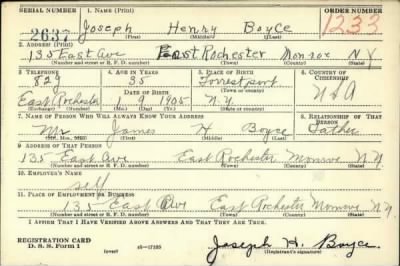 SERIAL NUMBER 1. NAME (Print) ORDER NUMBER
2637 Joseph Henry Boyce 1233
(First) (Middle) (Last)
2. ADDRESS (Print)
135 East Ave East Rochester Monroe N.Y.
(Number and street or R. F. D. number) (Town) (County) (State)
3. TELEPHONE 4. AGE IN YEARS 5. PLACE OF BIRTH 6. COUNTRY OF CITIZENSHIP
829 35 Forrestport
DATE OF BIRTH (Town or county)
East Rochester 1905 N.Y. USA
(Exchange) (Number) (Mo.) (Day) (Yr.) (State or country)
7. NAME OF PERSON WHO WILL ALWAYS KNOW YOUR ADDRESS 8. RELATIONSHIP OF THAT PERSON
Mr James H Boyce Father
(Mr., Mrs., Miss) (First) (Middle) (Last)
9. ADDRESS OF THAT PERSON
135 East Ave East Rochester Monroe N.Y.
(Number and street or R. F. D. number) (Town) (County) (State)
10. EMPLOYER'S NAME
self
11. PLACE OF EMPLOYMENT OR BUSINESS
135 East Ave East Rochester Monroe N.Y.
(Number and street or R. F. D. number) (Town) (County) (State)
I AFFIRM THAT I HAVE VERIFIED ABOVE ANSWERS AND THAT THEY ARE TRUE.
REGISTRATION CARD
D. S. S. Form 1 (over) 16—17105 Joseph H. Boyce
(Registrant's signature)